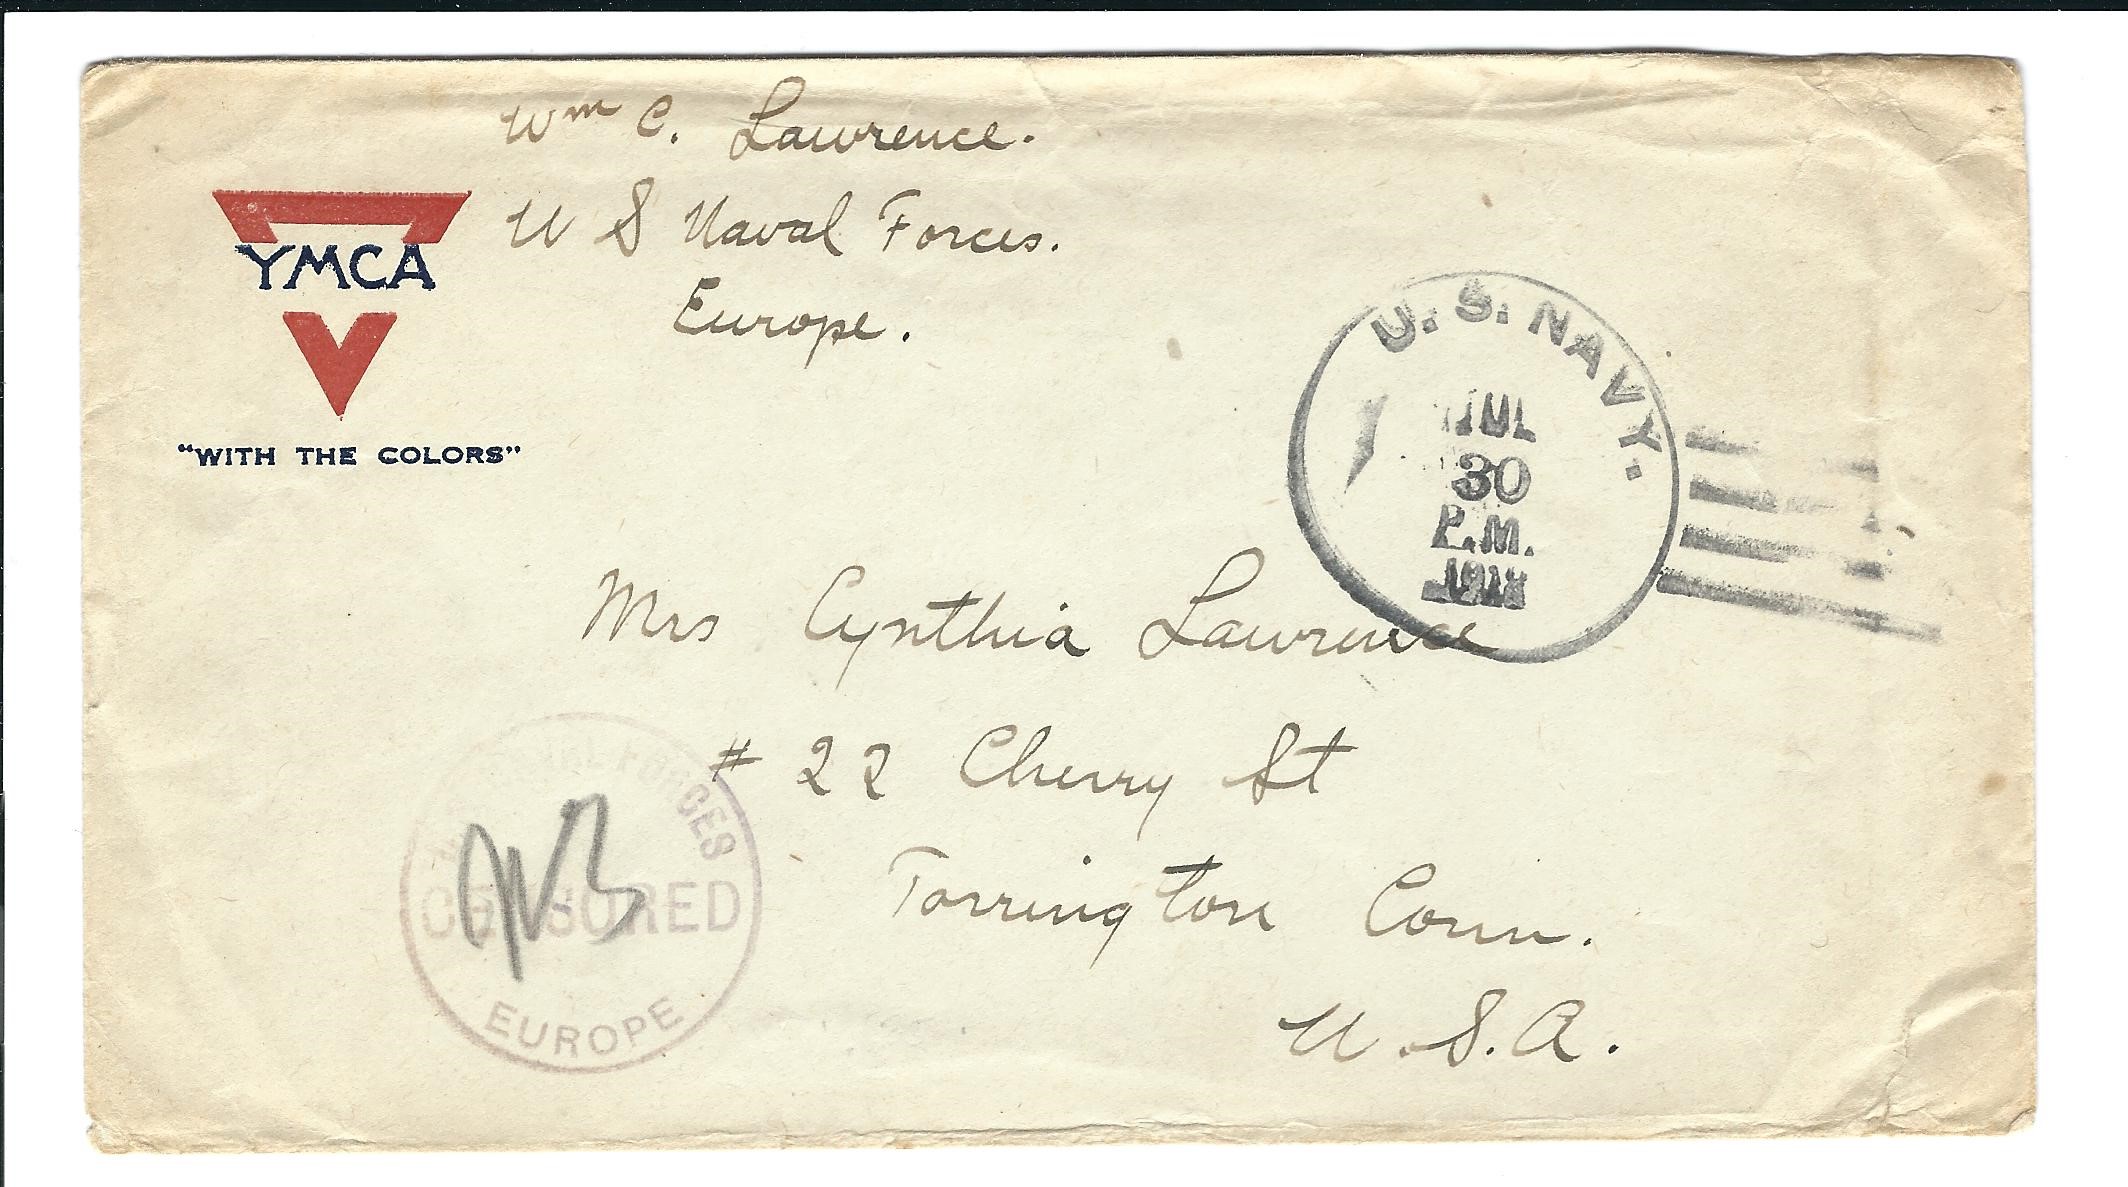 Wm C. Lawrence.
U S Naval Forces.
Europe.
YMCA
"WITH THE COLORS"
U. S. NAVY.
JUL
30
P.M.
1918
Mrs Cynthia Lawrence
# 22 Cherry St
Torrington Conn.
U.S.A.
NAVAL FORCES
CENSORED
EUROPE